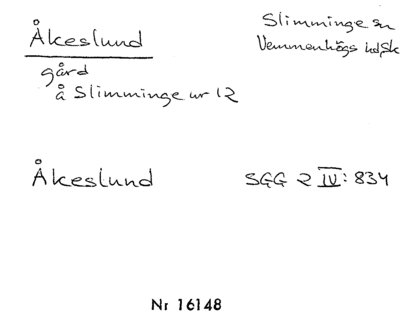 Åkeslund
Slimminge sn
Vemmenhögs hd, Sk
gård
å Slimminge nr 12
Åkeslund
SGG 2 IV: 834
Nr 16148